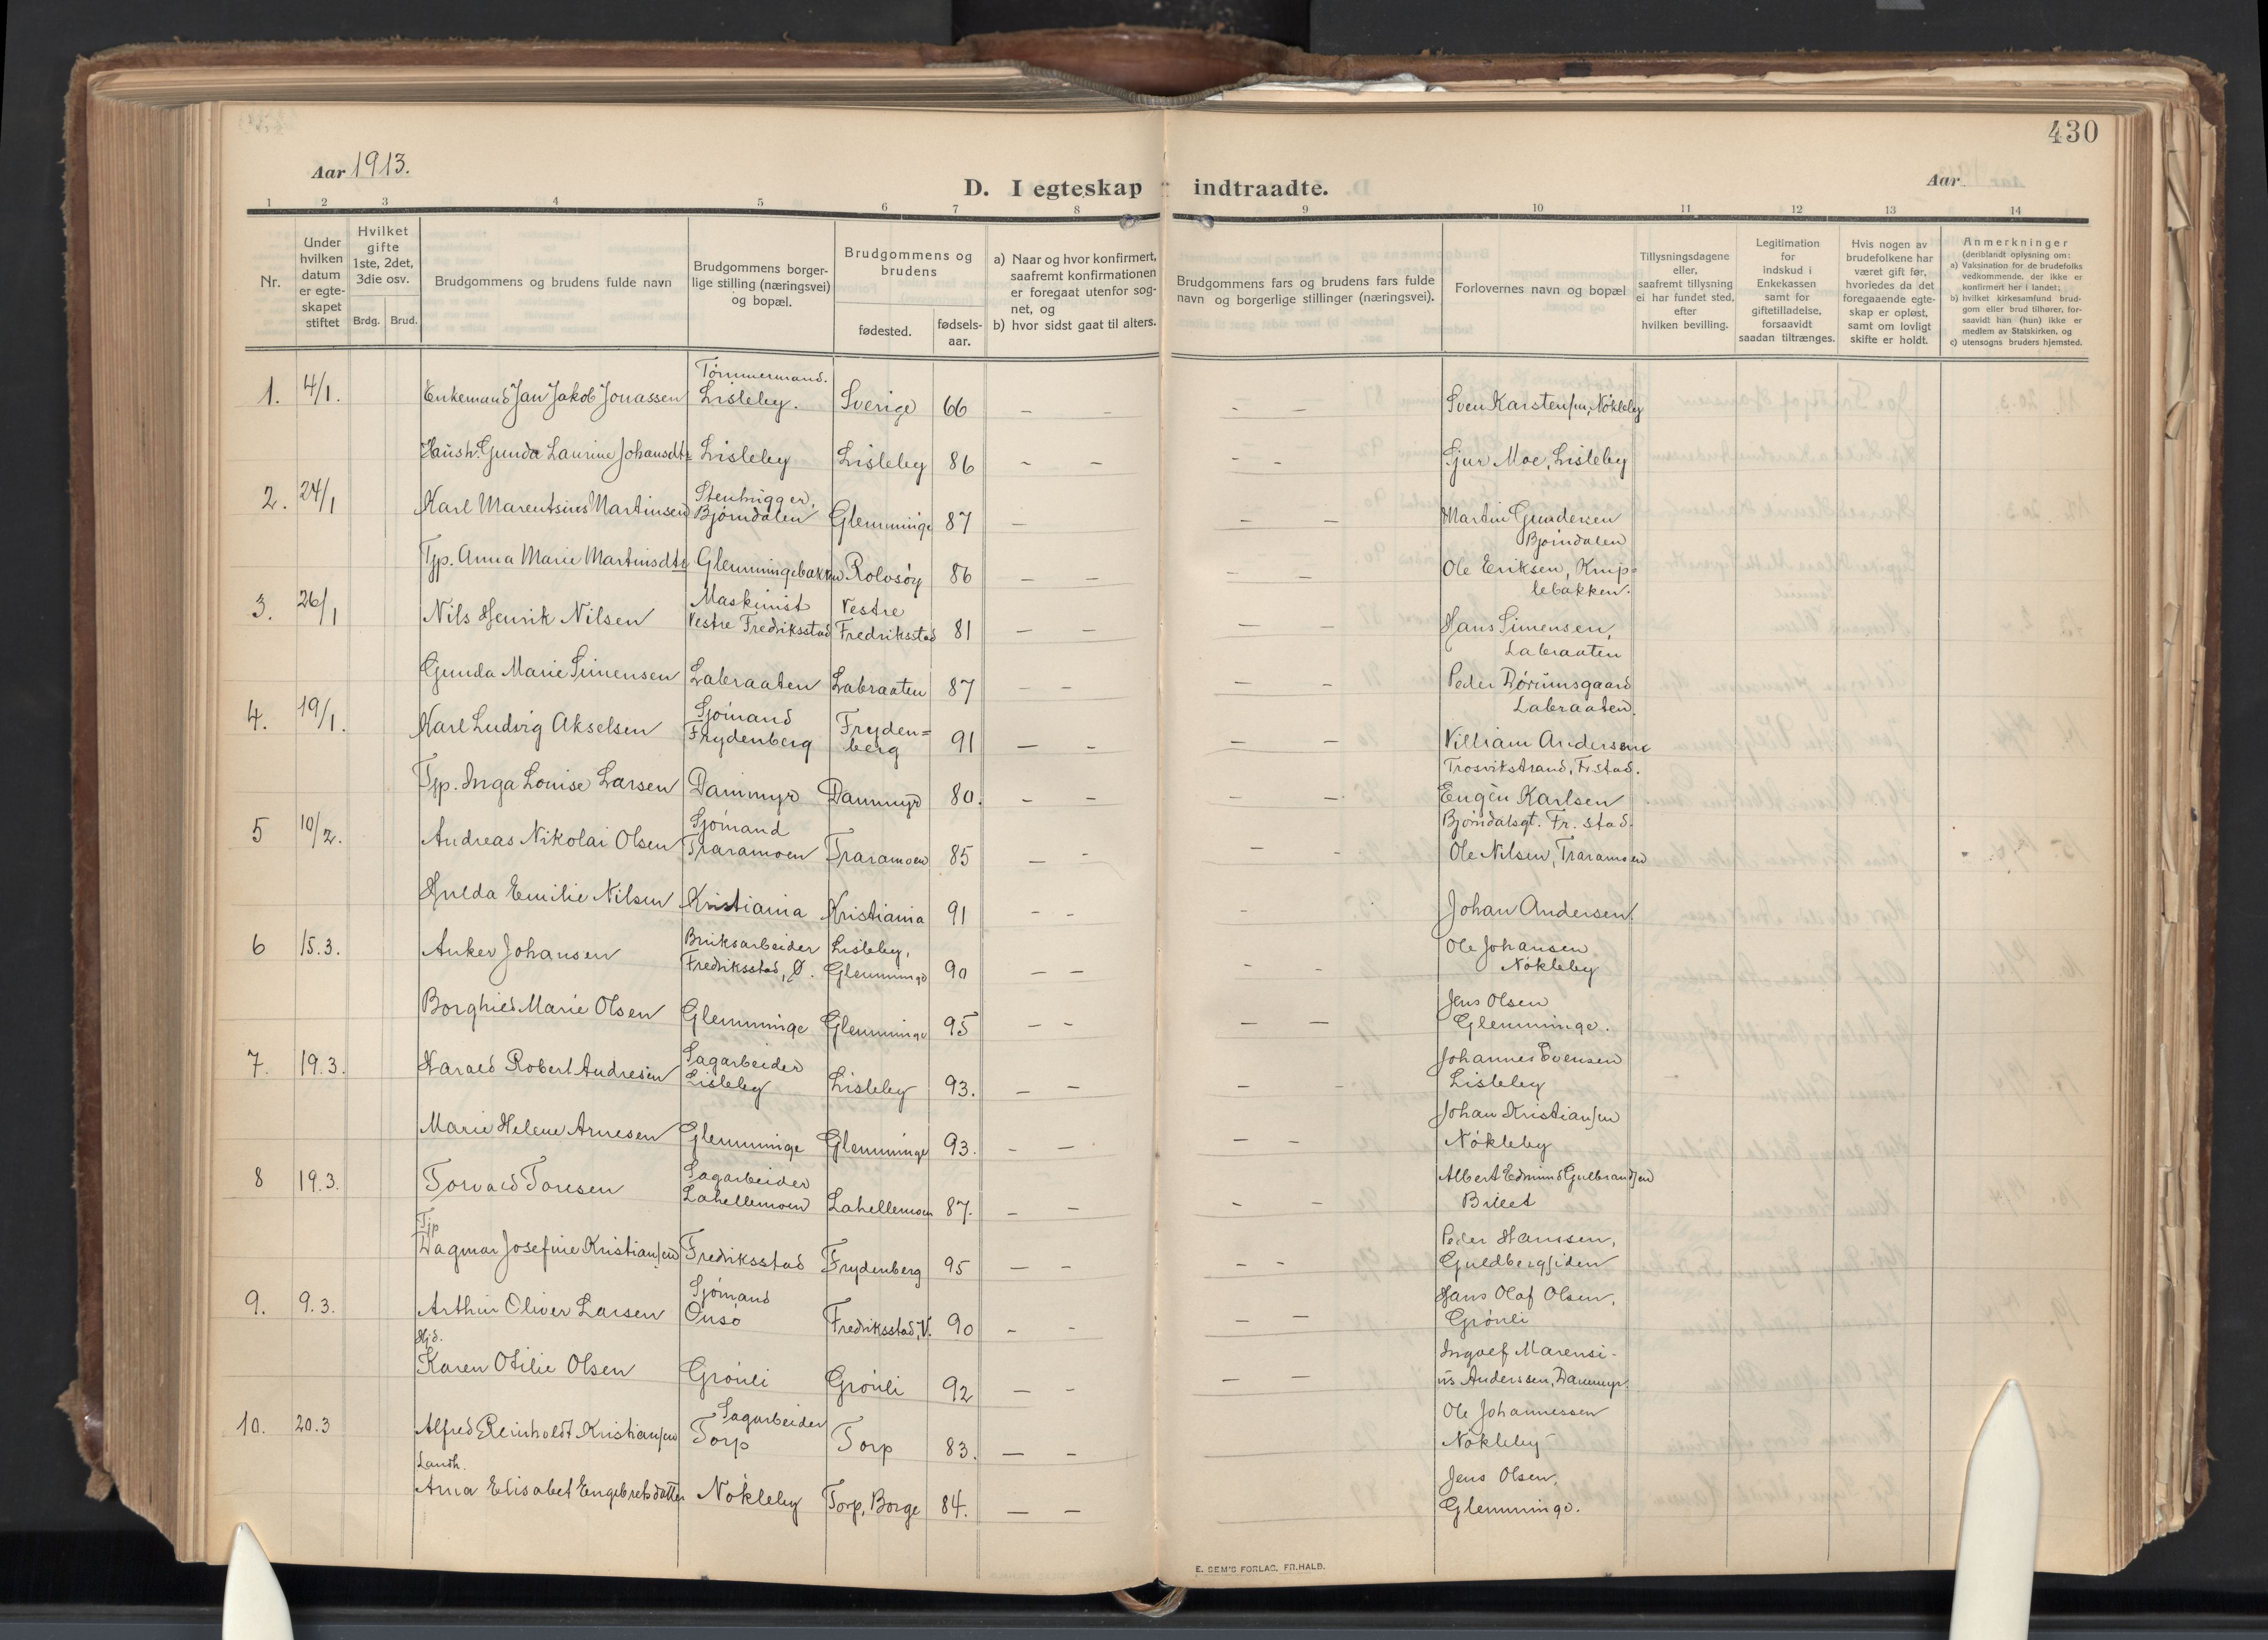 430
Aar 1913.
D. I egteskap indtraadte.
Aar
1 2 3 4 5 6 7 8 9 10 11 12 13 14
Nr.
Under
hvilken
datum
er egte-
skapet
stiftet
Hvilket
gifte
1ste, 2det,
3die osv.
Brdg. Brud.
Brudgommens og brudens fulde navn
Brudgommens borger-
lige stilling (næringsvei)
og bopæl.
Brudgommens og
brudens
fødested.
fødsels-
aar.
a) Naar og hvor konfirmert,
saafremt konfirmationen
er foregaat utenfor sog-
net, og
b) hvor sidst gaat til alters.
Brudgommens fars og brudens fars fulde
navn og borgerlige stillinger (næringsvei).
Forlovernes navn og bopæl
Tillysningsdagene
eller,
saafremt tillysning
ei har fundet sted,
efter
hvilken bevilling.
Legitimation
for
indskud i
Enkekassen
samt for
giftetilladelse,
forsaavidt
saadan tiltrænges.
Hvis nogen av
brudefolkene har
været gift før,
hvorledes da det
foregaaende egte-
skap er opløst,
samt om lovligt
skifte er holdt.
Anmerkninger
(deriblandt oplysning om:
a) Vaksination for de brudefolks
vedkommende, der ikke er
konfirmert her i landet;
b) hvilket kirkesamfund brud-
gom eller brud tilhører, for-
saavidt han (hun) ikke er
medlem av Statskirken, og
c) utensogns bruders hjemsted.
Tömmermand.
1. 4/1. Enkemand Jan Jakob Jonassen Lisleby. Sverige 66 – – – – Sven Karstensen, Nökleby
Haush. Gunda Laurine Johansdtr Lisleby Lisleby 86 – – – – Sjur Moe, Lisleby
Stenhugger,
2. 24/1 Karl Marentsius Martinsen Björndalen Glemminge 87 – – – Martin Gundersen
Björndalen
Tjp. Anna Marie Martinsdtr Glemmingebakken Rolvsöy 86 – – – – Ole Eriksen, Krup-
lebakken.
Maskinist Vestre
3. 26/1 Nils Henrik Nilsen Vestre Fredriksstad Fredriksstad 81 – – – – Hans Simensen,
Labraaten
Gunda Marie Simensen Labraaten Labraaten 87 – – – – Peder Dörumsgaard
Labraaten.
Sjömand Fryden=
4. 19/1. Karl Ludvig Akselsen Frydenberg berg 91 – – – – Villiam Andersen
Trosvikstrand, Frstad.
Tjp. Inga Louise Larsen Dammyr Dammyr 80. – – – – Eugèn Karlsen
Björndalsgt. Fr. stad.
Sjömand
5 10/2. Andreas Nikolai Olsen Traramoen Traramoen 85 – – – – Ole Nilsen, Traramoen
Hulda Emilie Nilsen Kristiania Kristiania 91 – – – Johan Andersen
Bruksarbeider Lisleby,
6 15.3. Anker Johansen Fredriksstad, Ø. Glemminge 90 – – – – Ole Johansen
Nökleby
Borghild Marie Olsen Glemminge Glemminge 95 – – – – Jens Olsen
Glemminge.
Sagarbeider
7. 19.3. Harald Robert Andresen Lisleby Lisleby 93. – – – – Johannes Evensen
Lisleby
Marie Helene Arnesen Glemminge Glemminge 93. – – – – Johan Kristiansen
Nökleby
Sagarbeider
8 19.3. Torvald Toresen Lahellemoen Lahellemoen 87. – – – – Albert Edmund Gulbrandsen
Brieet
Tjp
Dagmar Josefine Kristiansen Fredriksstad Frydenberg 95 – – – – Peder Hanssen,
Guldbergsiden
Sjömand
9. 9.3. Arthur Oliver Larsen Onsö Fredriksstad, V. 90 – – – – Hans Olaf Olsen,
Grönli
Hjd.
Karen Otilie Olsen Grönli Grönli 92 – – – – Ingolf Marensi-
us Anderssen, Dammyr.
Sagarbeider
10. 20.3 Alfred Reinholdt Kristiansen Torp Torp 83. – – Ole Johannessen
Nökleby
Landh.
Anna Elisabet Engebretsdatter Nökleby Torp, Borge 84. – – Jens Olsen,
Glemminge.
E. SEM'S FORLAG, FR.HALD.